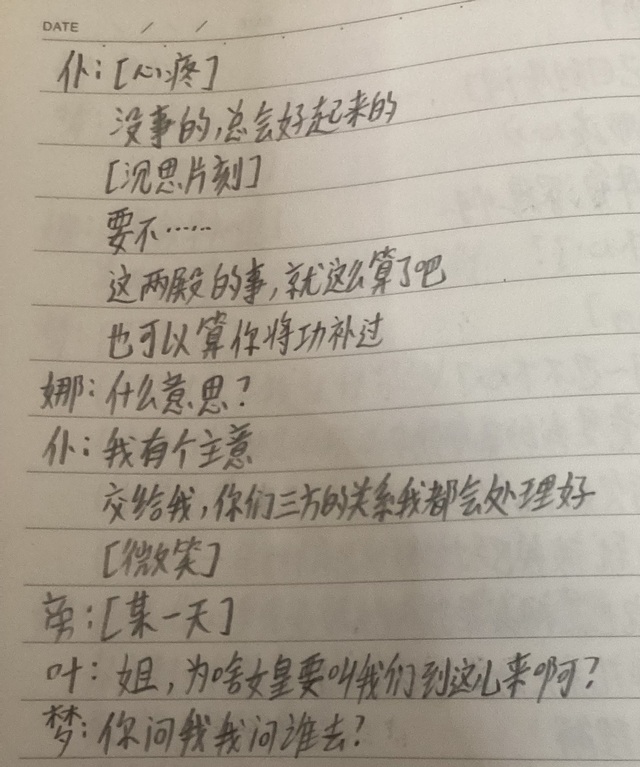 DATE / /
仆：[心疼]
没事的，总会好起来的
[沉思片刻]
要不……
这两殿的事，就这么算了吧
也可以算你将功补过
娜：什么意思？
仆：我有个主意
交给我，你们三方的关系我都会处理好
[微笑]
：[某一天]
叶：姐，为啥女皇要叫我们到这儿来啊？
梦：你问我我问谁去？